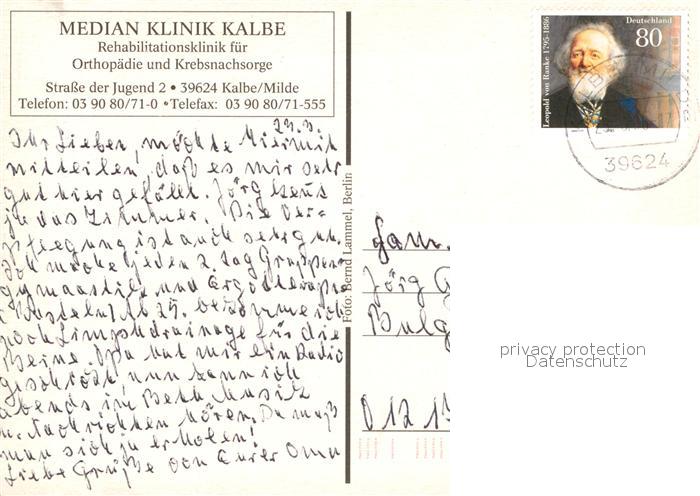 MEDIAN KLINIK KALBE
Rehabilitationsklinik für
Orthopädie und Krebsnachsorge
Straße der Jugend 2 • 39624 Kalbe/Milde
Telefon: 03 90 80/71-0 • Telefax: 03 90 80/71-555
23.3.
Ihr Lieben, möchte hiermit
mitteilen, daß es mir sehr
gut hier gefällt. Jörg
ja das Zimmer. Die Ver=
pflegung ist auch sehr gut.
Ich mache jeden 2. Tag Gruppen
gymnastik und Ergotherapie
(Basteln) Ab 25. bekomme ich
noch Limphdrainage für die
Beine. Opa hat mir ein Radio
geschickt nun kann ich
abends im Bett Musik
u. Nachrichten hören. Da muß
man sich ja erholen!
Liebe Grüße von Eurer Oma
Foto: Bernd Lammel, Berlin
Leopold von Ranke 1795-1886
Deutschland
80
39624
Fam.
Jörg G
Bulg
D 12 1
privacy protection
Datenschutz